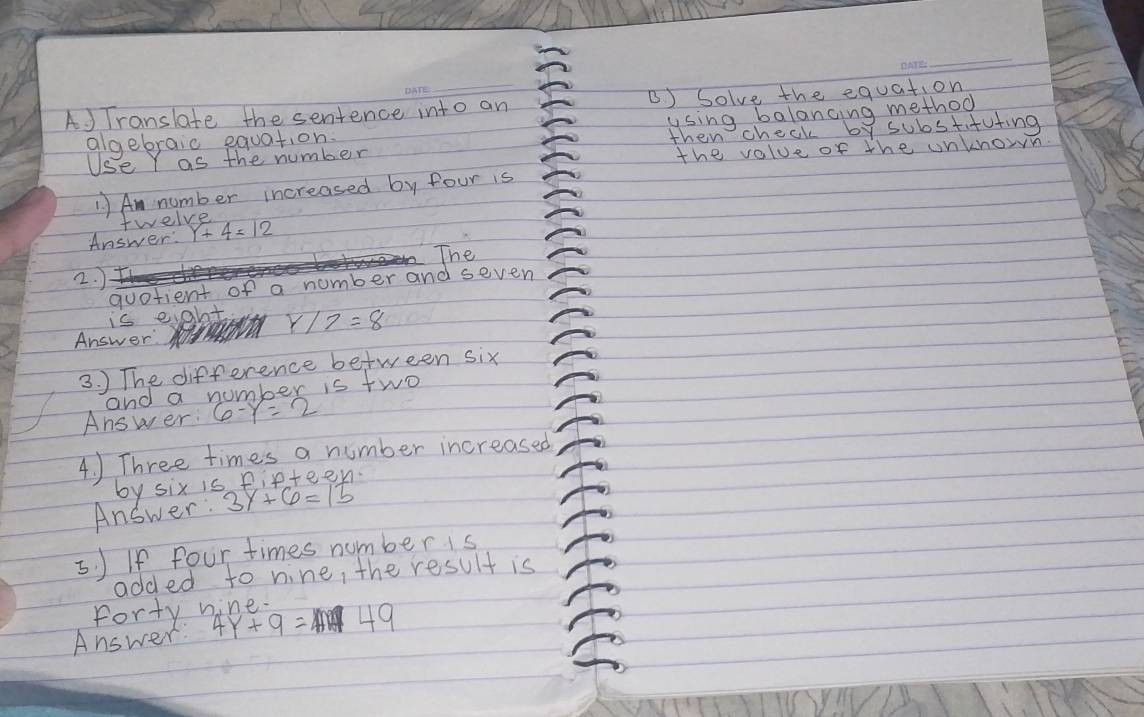 DATE:
A.) Translate the sentence into an
algebraic equation.
Use Y as the number
1.) A number increased by four is
twelve
Answer: Y+4=12
2.) The difference between The
quotient of a number and seven
is eight.
Answer: Y/7=8
3.) The difference between six
and a number is two
Answer: 6-Y=2
4.) Three times a number increased
by six is fifteen.
Answer: 3Y+6=15
5.) If four times number is
added to nine, the result is
Forty nine.
Answer: 4Y+9= 49
DATE:
B.) Solve the equation
using balancing method
then check by substituting
the value of the unknown.